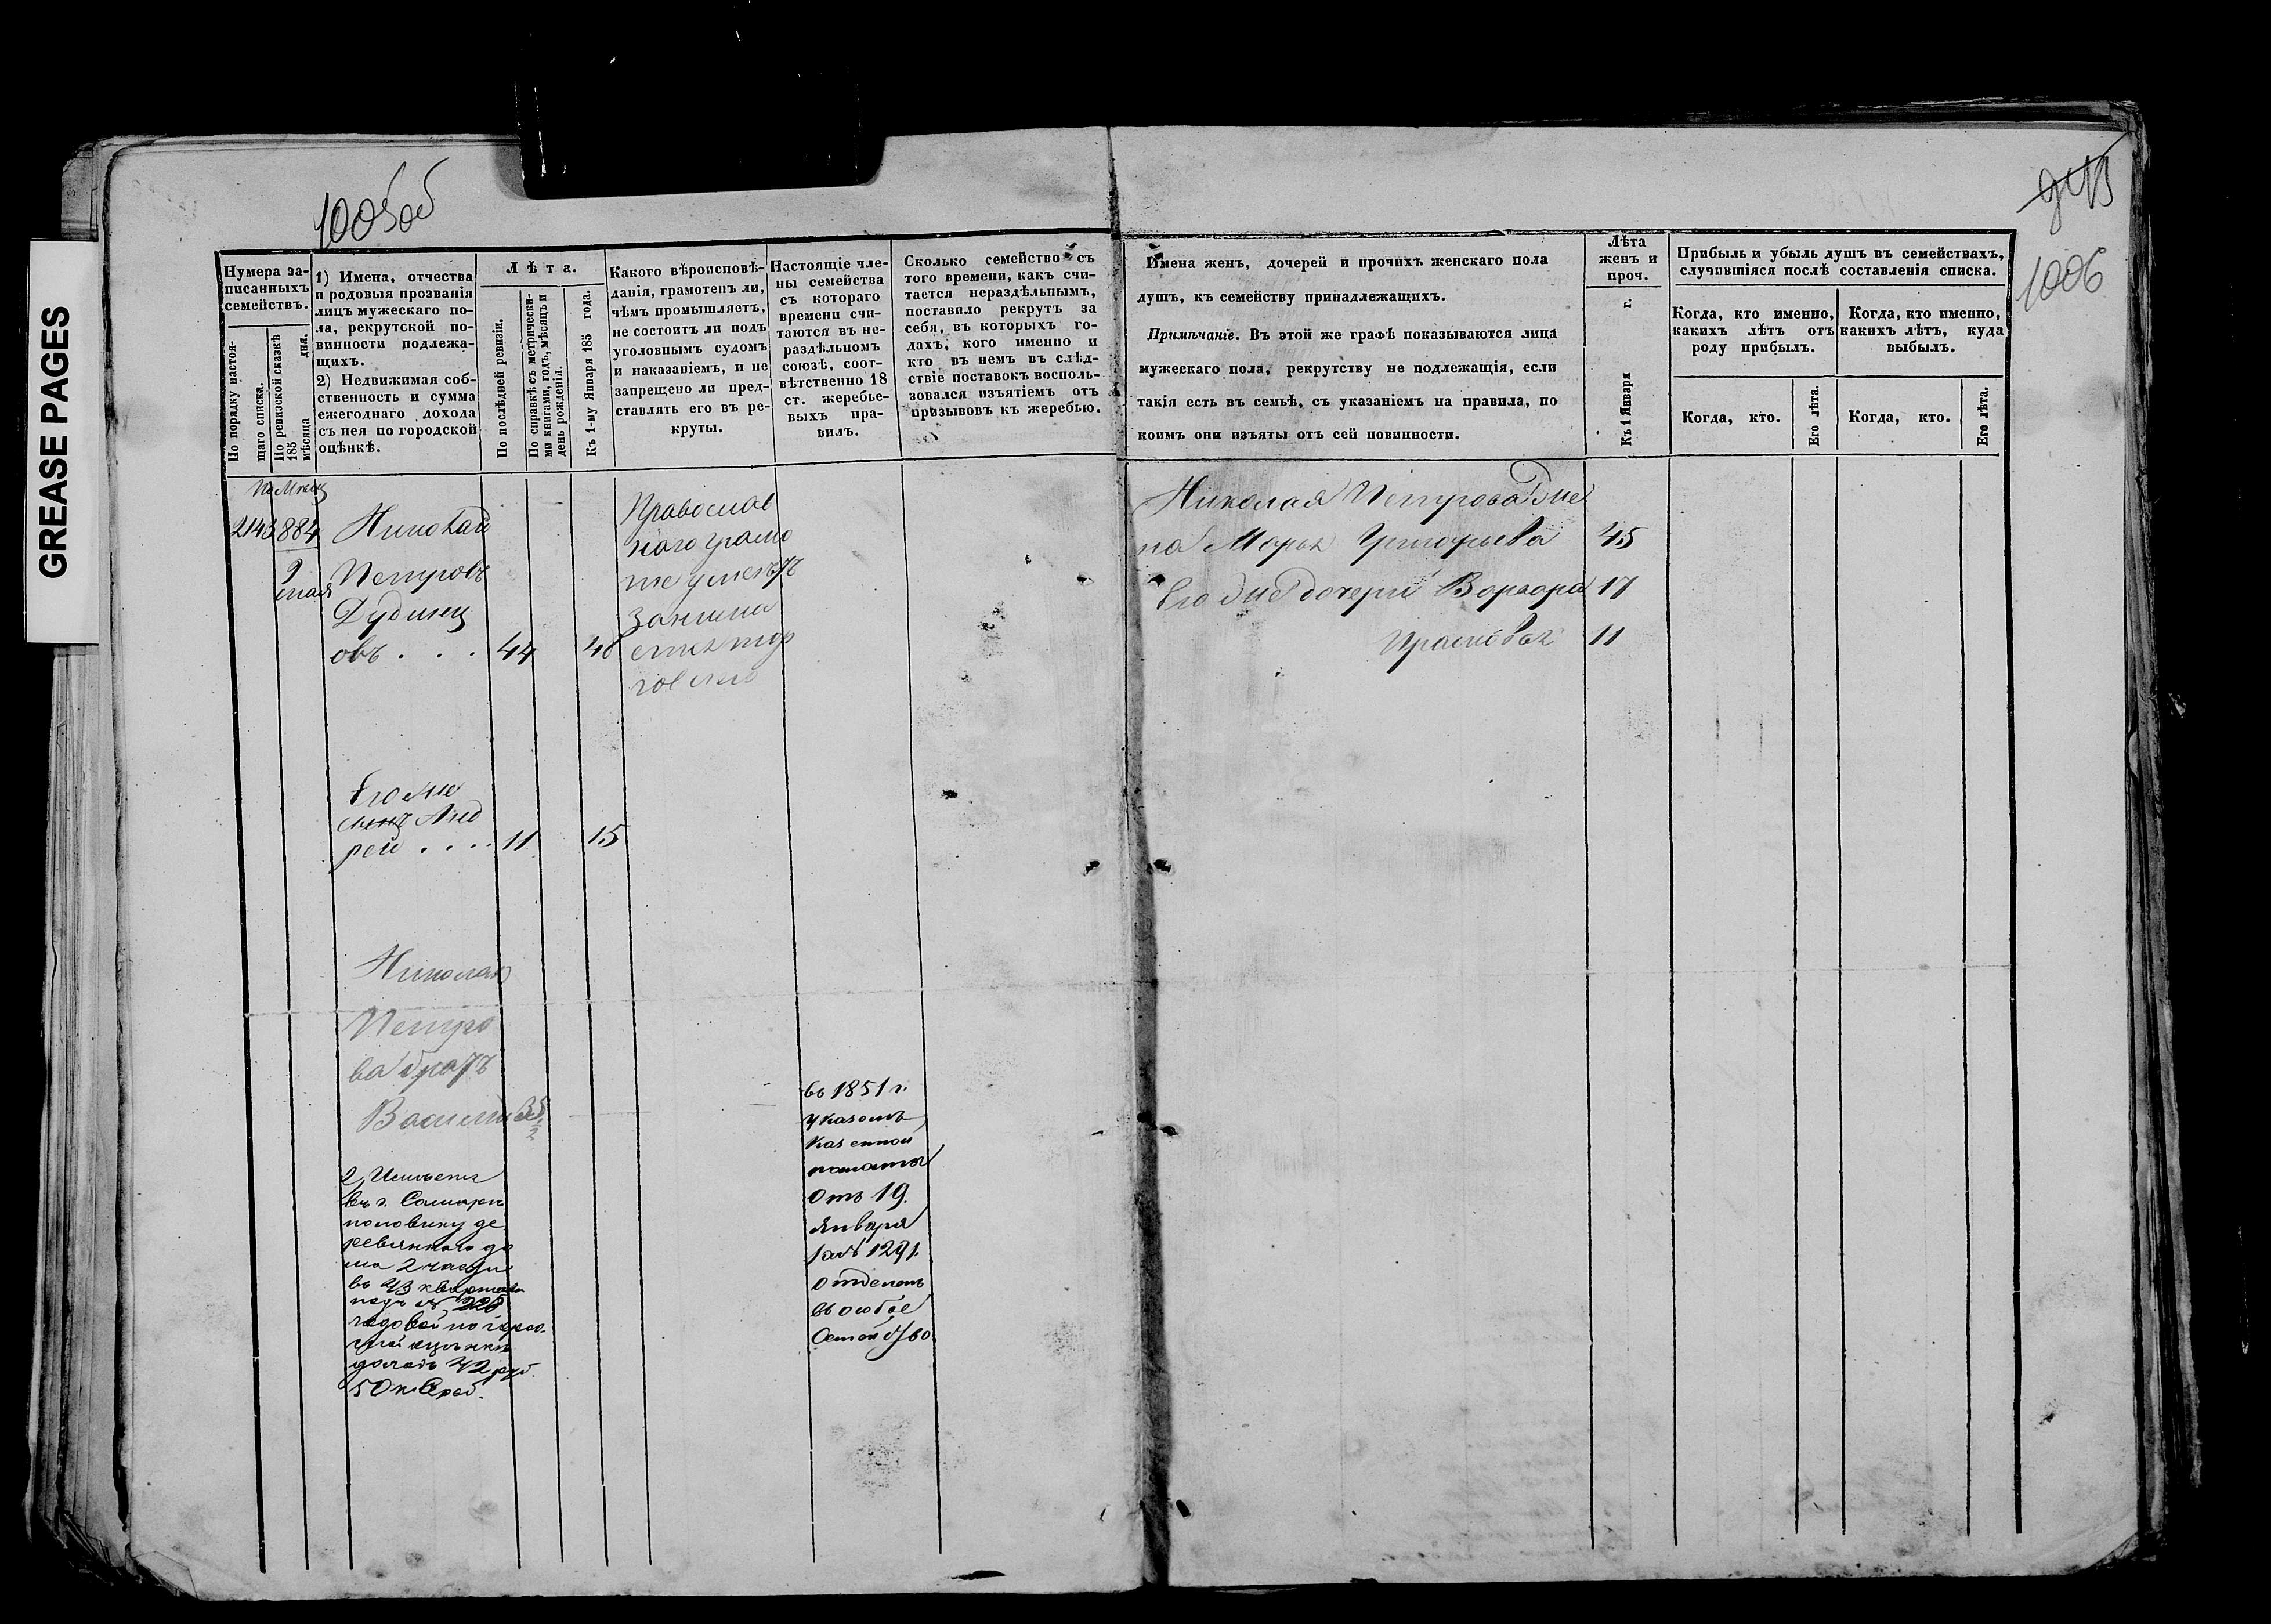 GREASE PAGES
1005 об
1006
Нумера за-
писанныхъ
семействъ.
По порядку настоя-
щаго списка.
По ревизской сказкѣ
185
мѣсяца дня.
1) Имена, отчества
и родовыя прозванія
лицъ мужескаго по-
ла, рекрутской по-
винности подлежа-
щихъ.
2) Недвижимая соб-
ственность и сумма
ежегоднаго дохода
съ нея по городской
оцѣнкѣ.
Лѣта.
По послѣдней ревизіи.
По справкѣ съ метрически-
ми книгами, годъ, мѣсяцъ и
день рожденія.
Къ 1-му Января 185 года.
Какого вѣроисповѣ-
данія, грамотенъ ли,
чѣмъ промышляетъ,
не состоитъ ли подъ
уголовнымъ судомъ
и наказаніемъ, и не
запрещено ли пред-
ставлять его въ ре-
круты.
Настоящіе чле-
ны семейства
съ котораго
времени счи-
таются въ не-
раздѣльномъ
союзѣ, соот-
вѣтственно 18
ст. жеребье-
выхъ пра-
вилъ.
Сколько семейство съ
того времени, какъ счи-
тается нераздѣльнымъ,
поставило рекрутъ за
себя, въ которыхъ го-
дахъ, кого именно и
кто въ немъ въ слѣд-
ствіе поставокъ восполь-
зовался изъятіемъ отъ
призывовъ къ жеребью.
Имена женъ, дочерей и прочихъ женскаго пола
душъ, къ семейству принадлежащихъ.
Примѣчаніе. Въ этой же графѣ показываются лица
мужескаго пола, рекрутству не подлежащія, если
такія есть въ семьѣ, съ указаніемъ на правила, по
коимъ они изъяты отъ сей повинности.
Лѣта
женъ и
проч.
Къ 1 Января г.
Прибыль и убыль душъ въ семействахъ,
случившіяся послѣ составленія списка.
Когда, кто именно,
какихъ лѣтъ отъ
роду прибылъ.
Когда, кто именно,
какихъ лѣтъ, куда
выбылъ.
Когда, кто.
Его лѣта.
Когда, кто.
Его лѣта.
2143 884
9
мая
Николай
Петровъ
Дудинец
овъ . . . 44 48
Православ
наго грамо
те умеетъ
занима
ется тор
говлею
Его
сынъ Анд
рей . . . . 11 15
Николая
Петро
ва братъ
Василий
2) Имѣетъ
въ г. Самарѣ
половину де
ревяннаго до
ма 2 части
въ 43 квартале
подъ № 228
годовой по город
ской оцѣнкѣ
доходъ 42 руб.
50 к. Сереб.
въ 1851 г.
указомъ
Казенной
палаты
отъ 19
Января
за № 1291
отделенъ
въ особое
Семейство
Николая Петрова же
на Марья Григорьева 45
Его же дочери Варвара 17
Прасковья 11